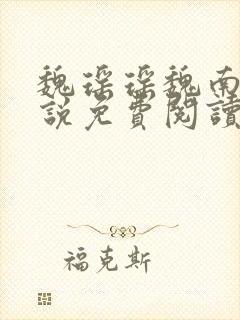 魏瑶瑶魏南
說免費閱讀
福克斯